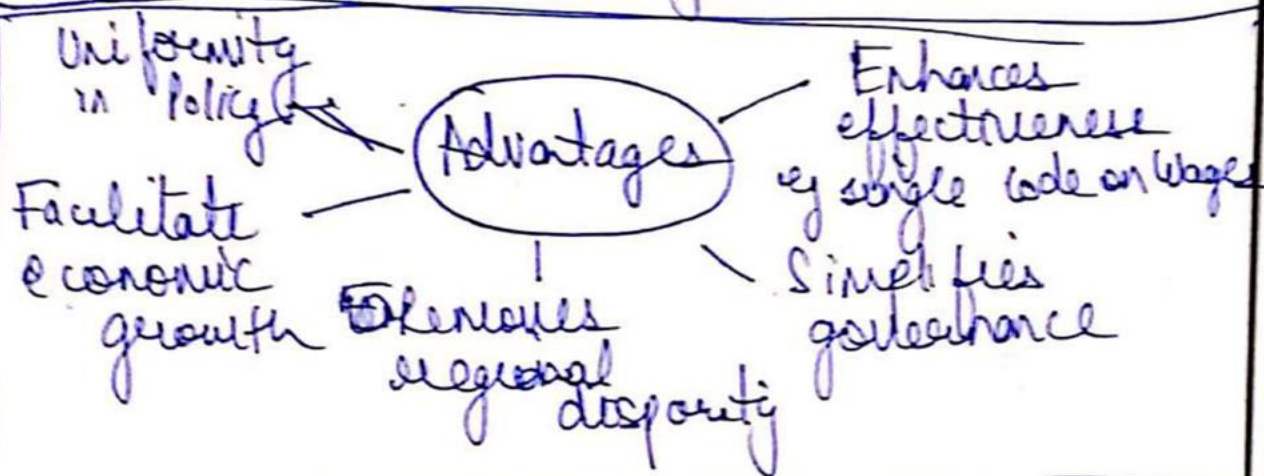 Uniformity
in Policy
Advantages
Enhances
effectiveness
eg single code on Wages
Facilitate
economic
growth
Removes
regional
disparity
Simplifies
governance